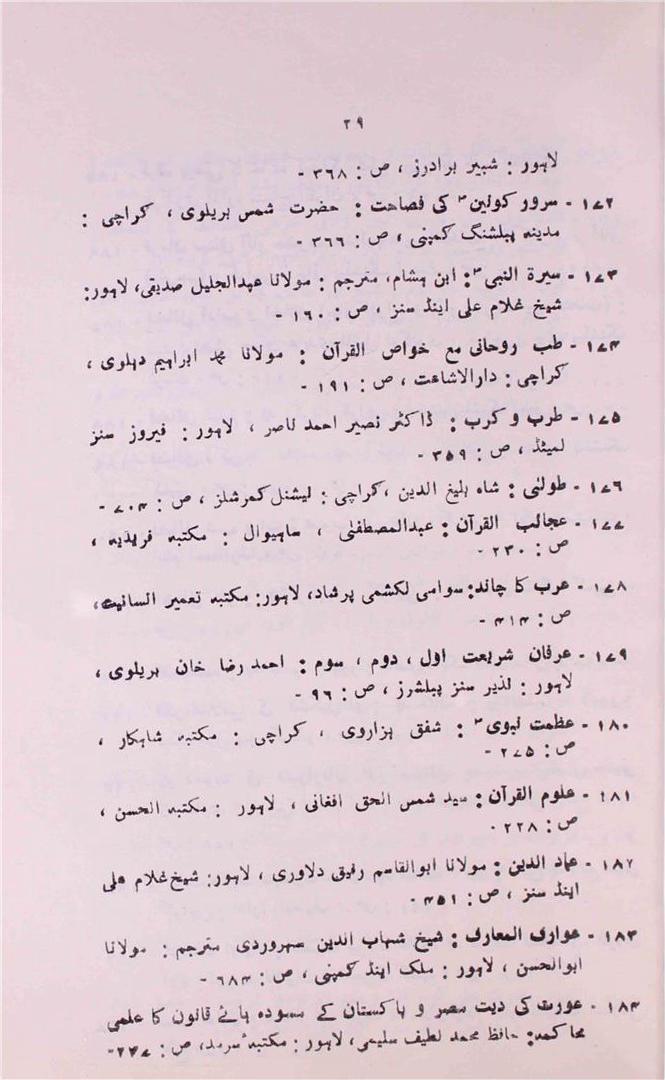 ۲۹
لاہور : شبیر برادرز ، ص : ۳۶۸ -
۱۷۲ - سرور کونینؐ کی فصاحت : حضرت شمس بریلوی ، کراچی :
مدینہ پبلشنگ کمپنی ، ص : ۳۶۶ -
۱۷۳ - سیرۃ النبیؐ : ابن ہشام، مترجم : مولانا عبدالجلیل صدیقی، لاہور:
شیخ غلام علی اینڈ سنز ، ص : ۱۶۰ -
۱۷۴ - طب روحانی مع خواص القرآن : مولانا محمد ابراہیم دہلوی ،
کراچی : دارالاشاعت ، ص : ۱۹۱ -
۱۷۵ - طرب و کرب : ڈاکٹر نصیر احمد ناصر ، لاہور : فیروز سنز
لمیٹڈ ، ص : ۳۵۹ -
۱۷۶ - طولئی : شاہ بلیغ الدین ،کراچی : نیشنل کمرشلز ، ص : ۷۰۴ -
۱۷۷ - عجائب القرآن : عبدالمصطفیٰ ، ساہیوال : مکتبہ فریدیہ ،
ص : ۲۳۰ -
۱۷۸ - عرب کا چاند: سوامی لکشمی پرشاد، لاہور: مکتبہ تعمیر انسانیت،
ص : ۴۱۴ -
۱۷۹ - عرفان شریعت اول ، دوم ، سوم : احمد رضا خان بریلوی ،
لاہور : نذیر سنز پبلشرز ، ص : ۹۶ -
۱۸۰ - عظمت نبویؐ : شفق ہزاروی ، کراچی : مکتبہ شاہکار ،
ص : ۲۷۵ -
۱۸۱ - علوم القرآن : سید شمس الحق افغانی ، لاہور : مکتبہ الحسن ،
ص : ۲۲۸ -
۱۸۲ - عماد الدین : مولانا ابوالقاسم رفیق دلاوری ، لاہور: شیخ غلام علی
اینڈ سنز ، ص : ۴۵۱ -
۱۸۳ - عوارف المعارف : شیخ شہاب الدین سہروردی مترجم : مولانا
ابوالحسن ، لاہور : ملک اینڈ کمپنی ، ص : ۶۸۴ -
۱۸۴ - عورت کی دیت مصر و پاکستان کے مسودہ ہائے قانون کا علمی
محاکمہ: حافظ محمد لطیف سلیمی، لاہور: مکتبۂ سرمد، ص :